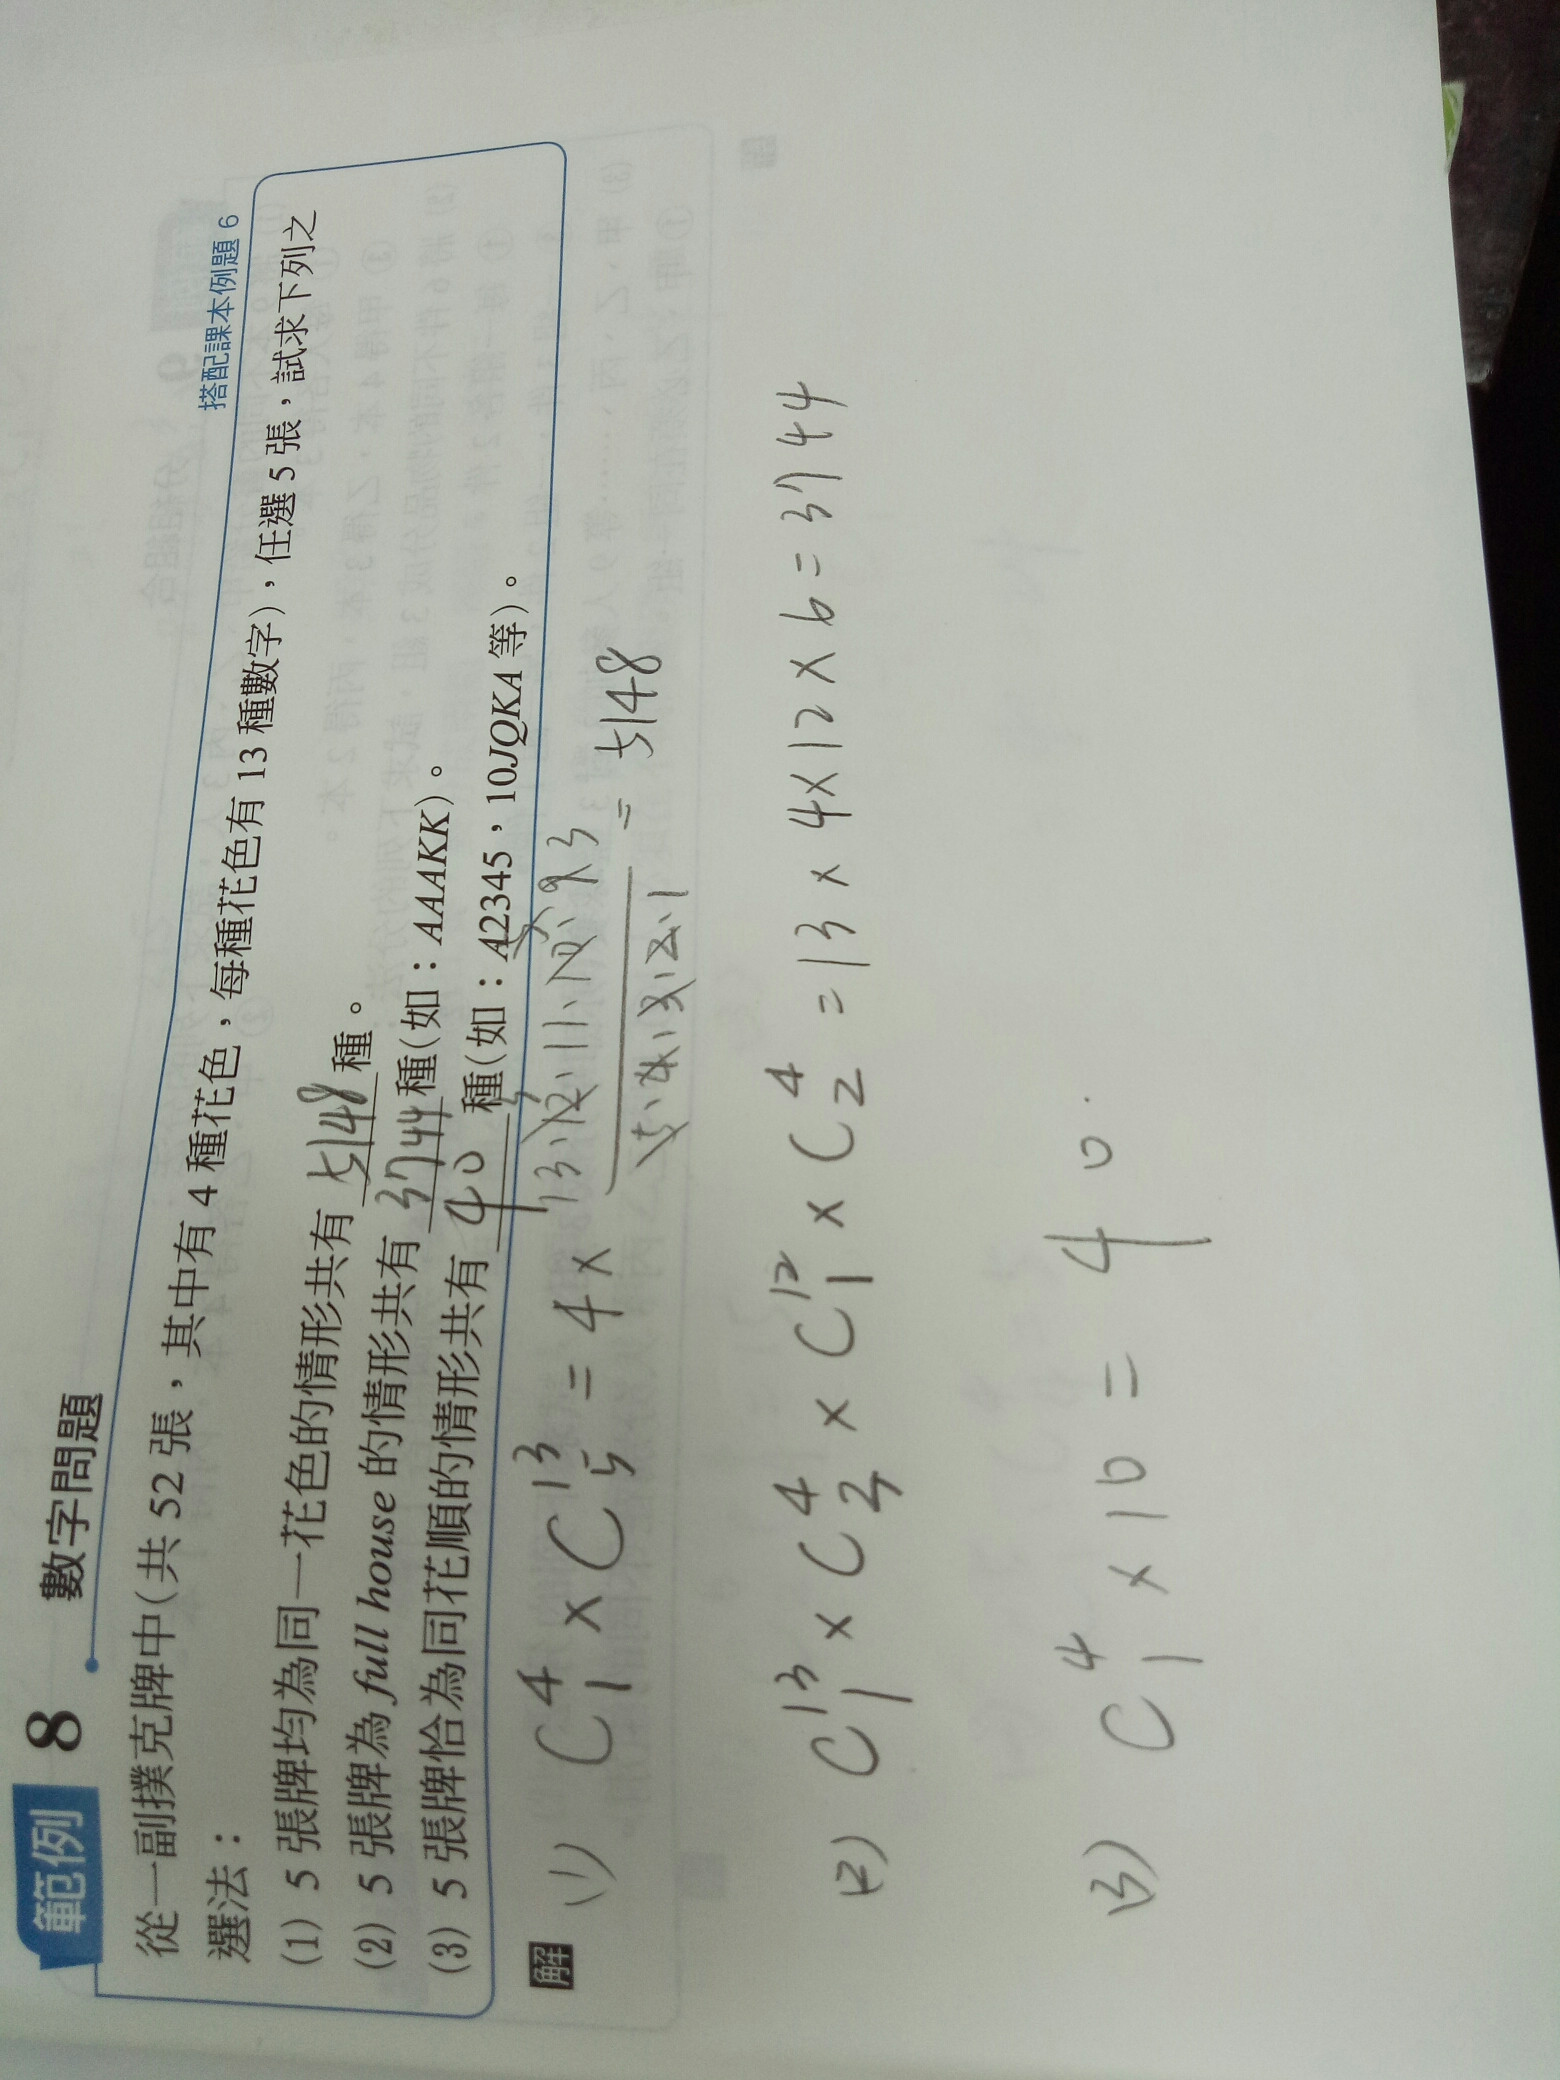 範例 8 數字問題
搭配課本例題 6
從一副撲克牌中(共 52 張，其中有 4 種花色，每種花色有 13 種數字)，任選 5 張，試求下列之
選法：
(1) 5 張牌均為同一花色的情形共有 5148 種。
(2) 5 張牌為 full house 的情形共有 3744 種(如：AAAKK)。
(3) 5 張牌恰為同花順的情形共有 40 種(如：A2345，10JQKA 等)。
解
(1) C⁴₁ × C¹³₅ = 4 × 13·12·11·10·9 / 5·4·3·2·1 = 5148
(2) C¹³₁ × C⁴₃ × C¹²₁ × C⁴₂ = 13 × 4 × 12 × 6 = 3744
(3) C⁴₁ × 10 = 40